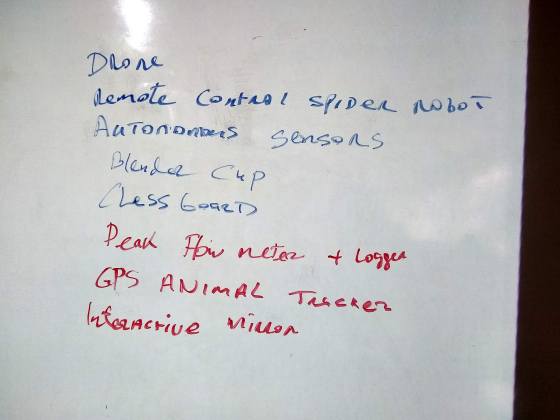 Drone
Remote Control Spider Robot
Autonomous Sensors
Blender Cup
Chess Board
Peak Flow meter + Logger
GPS ANIMAL Tracker
Interactive Mirror